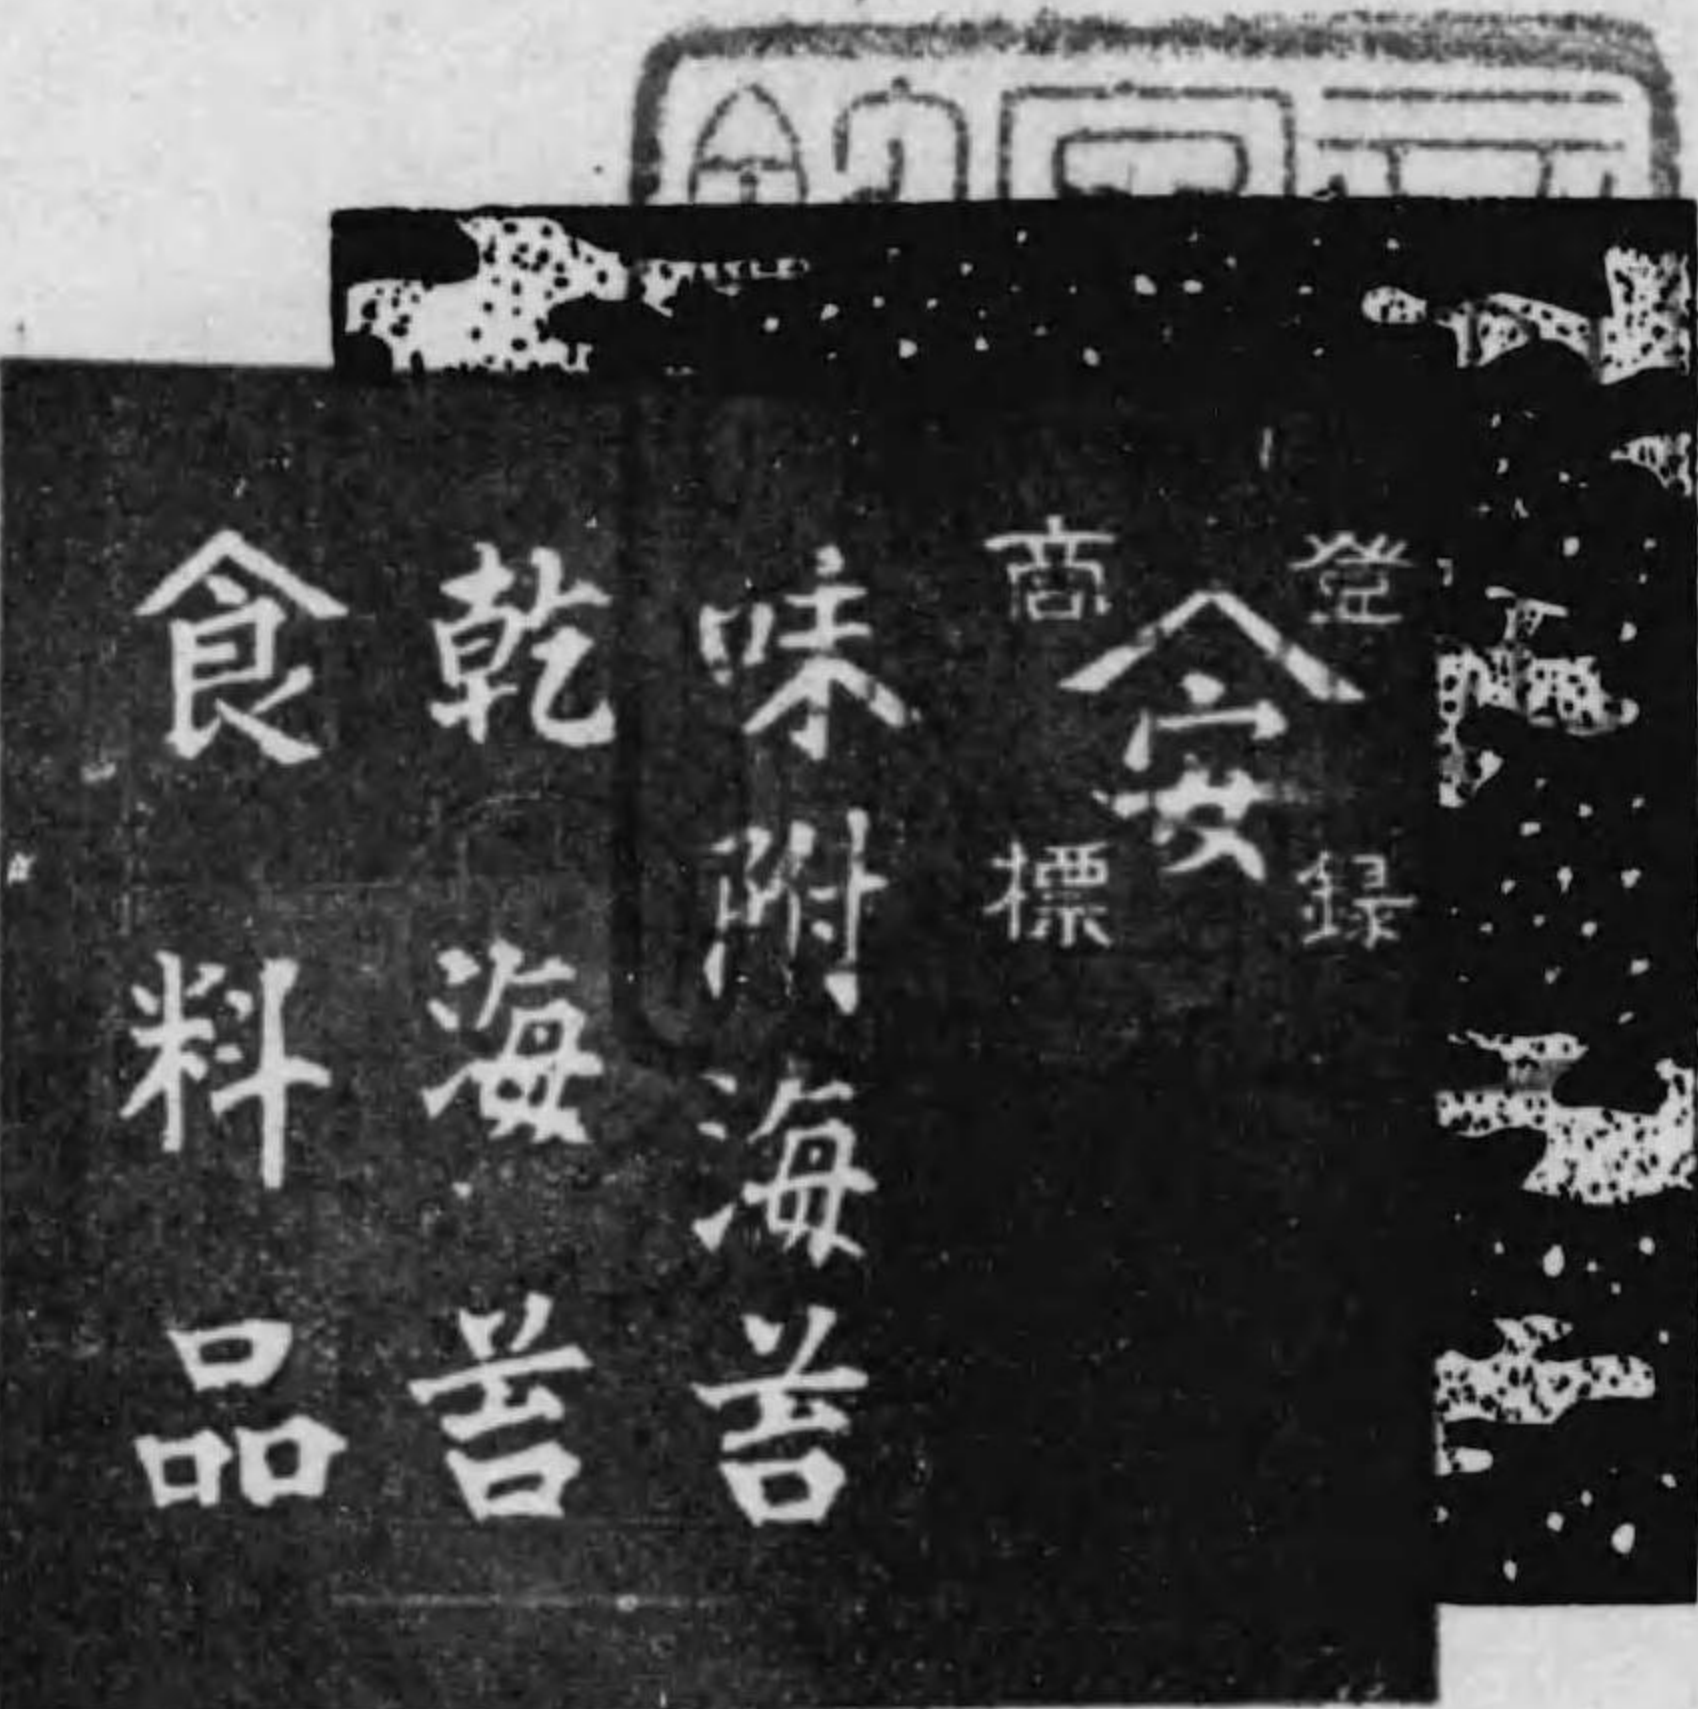 登録
安
商標
味附海苔
乾海苔
食料品